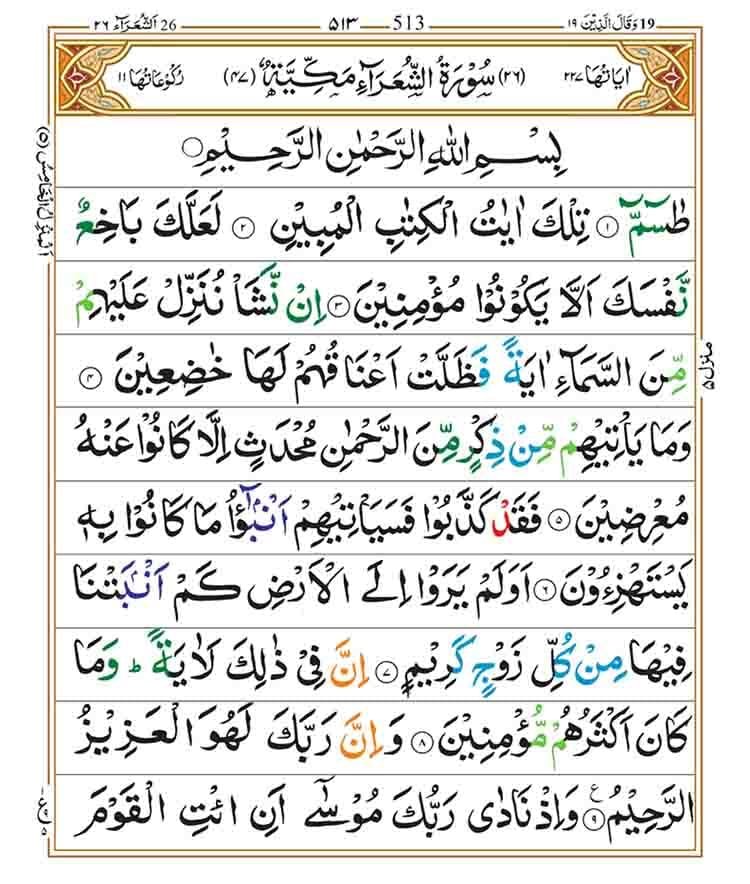 19 وَقَالَ الَّذِيْنَ ١٩ 513 ٥١٣ 26 اَلشُّعَرَآء ٢٦
اٰيَاتُهَا ٢٢٧ (٢٦) سُوْرَةُ الشُّعَرَآءِ مَكِّيَّةٌ (٤٧) رُكُوْعَاتُهَا ١١
بِسْمِ اللّٰهِ الرَّحْمٰنِ الرَّحِيْمِ
طٰسٓمّٓ ١ تِلْكَ اٰيٰتُ الْكِتٰبِ الْمُبِيْنِ ٢ لَعَلَّكَ بَاخِعٌ
نَّفْسَكَ اَلَّا يَكُوْنُوْا مُؤْمِنِيْنَ ٣ اِنْ نَّشَاْ نُنَزِّلْ عَلَيْهِمْ
مِّنَ السَّمَآءِ اٰيَةً فَظَلَّتْ اَعْنَاقُهُمْ لَهَا خٰضِعِيْنَ ٤
وَمَا يَاْتِيْهِمْ مِّنْ ذِكْرٍ مِّنَ الرَّحْمٰنِ مُحْدَثٍ اِلَّا كَانُوْا عَنْهُ
مُعْرِضِيْنَ ٥ فَقَدْ كَذَّبُوْا فَسَيَاْتِيْهِمْ اَنْۢبٰٓؤُا مَا كَانُوْا بِهٖ
يَسْتَهْزِءُوْنَ ٦ اَوَلَمْ يَرَوْا اِلَى الْاَرْضِ كَمْ اَنْۢبَتْنَا
فِيْهَا مِنْ كُلِّ زَوْجٍ كَرِيْمٍ ٧ اِنَّ فِيْ ذٰلِكَ لَاٰيَةً ؕ وَمَا
كَانَ اَكْثَرُهُمْ مُّؤْمِنِيْنَ ٨ وَاِنَّ رَبَّكَ لَهُوَ الْعَزِيْزُ
الرَّحِيْمُ ٩ ع وَاِذْ نَادٰى رَبُّكَ مُوْسٰٓى اَنِ ائْتِ الْقَوْمَ
اَلْمَنْزِلُ الْخَامِسُ (٥)
منزل ٥